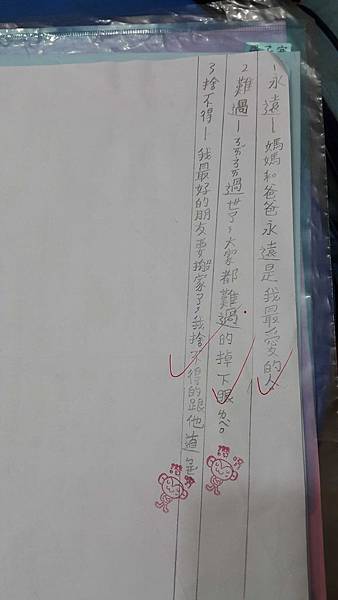 1永遠—媽媽和爸爸永遠是我最愛的人
2難過—ㄋㄞˇㄋㄞ過世了，大家都難過的掉下眼ㄌㄟˋ。
3捨不得—我最好的朋友要搬家了，我捨不得的跟他道